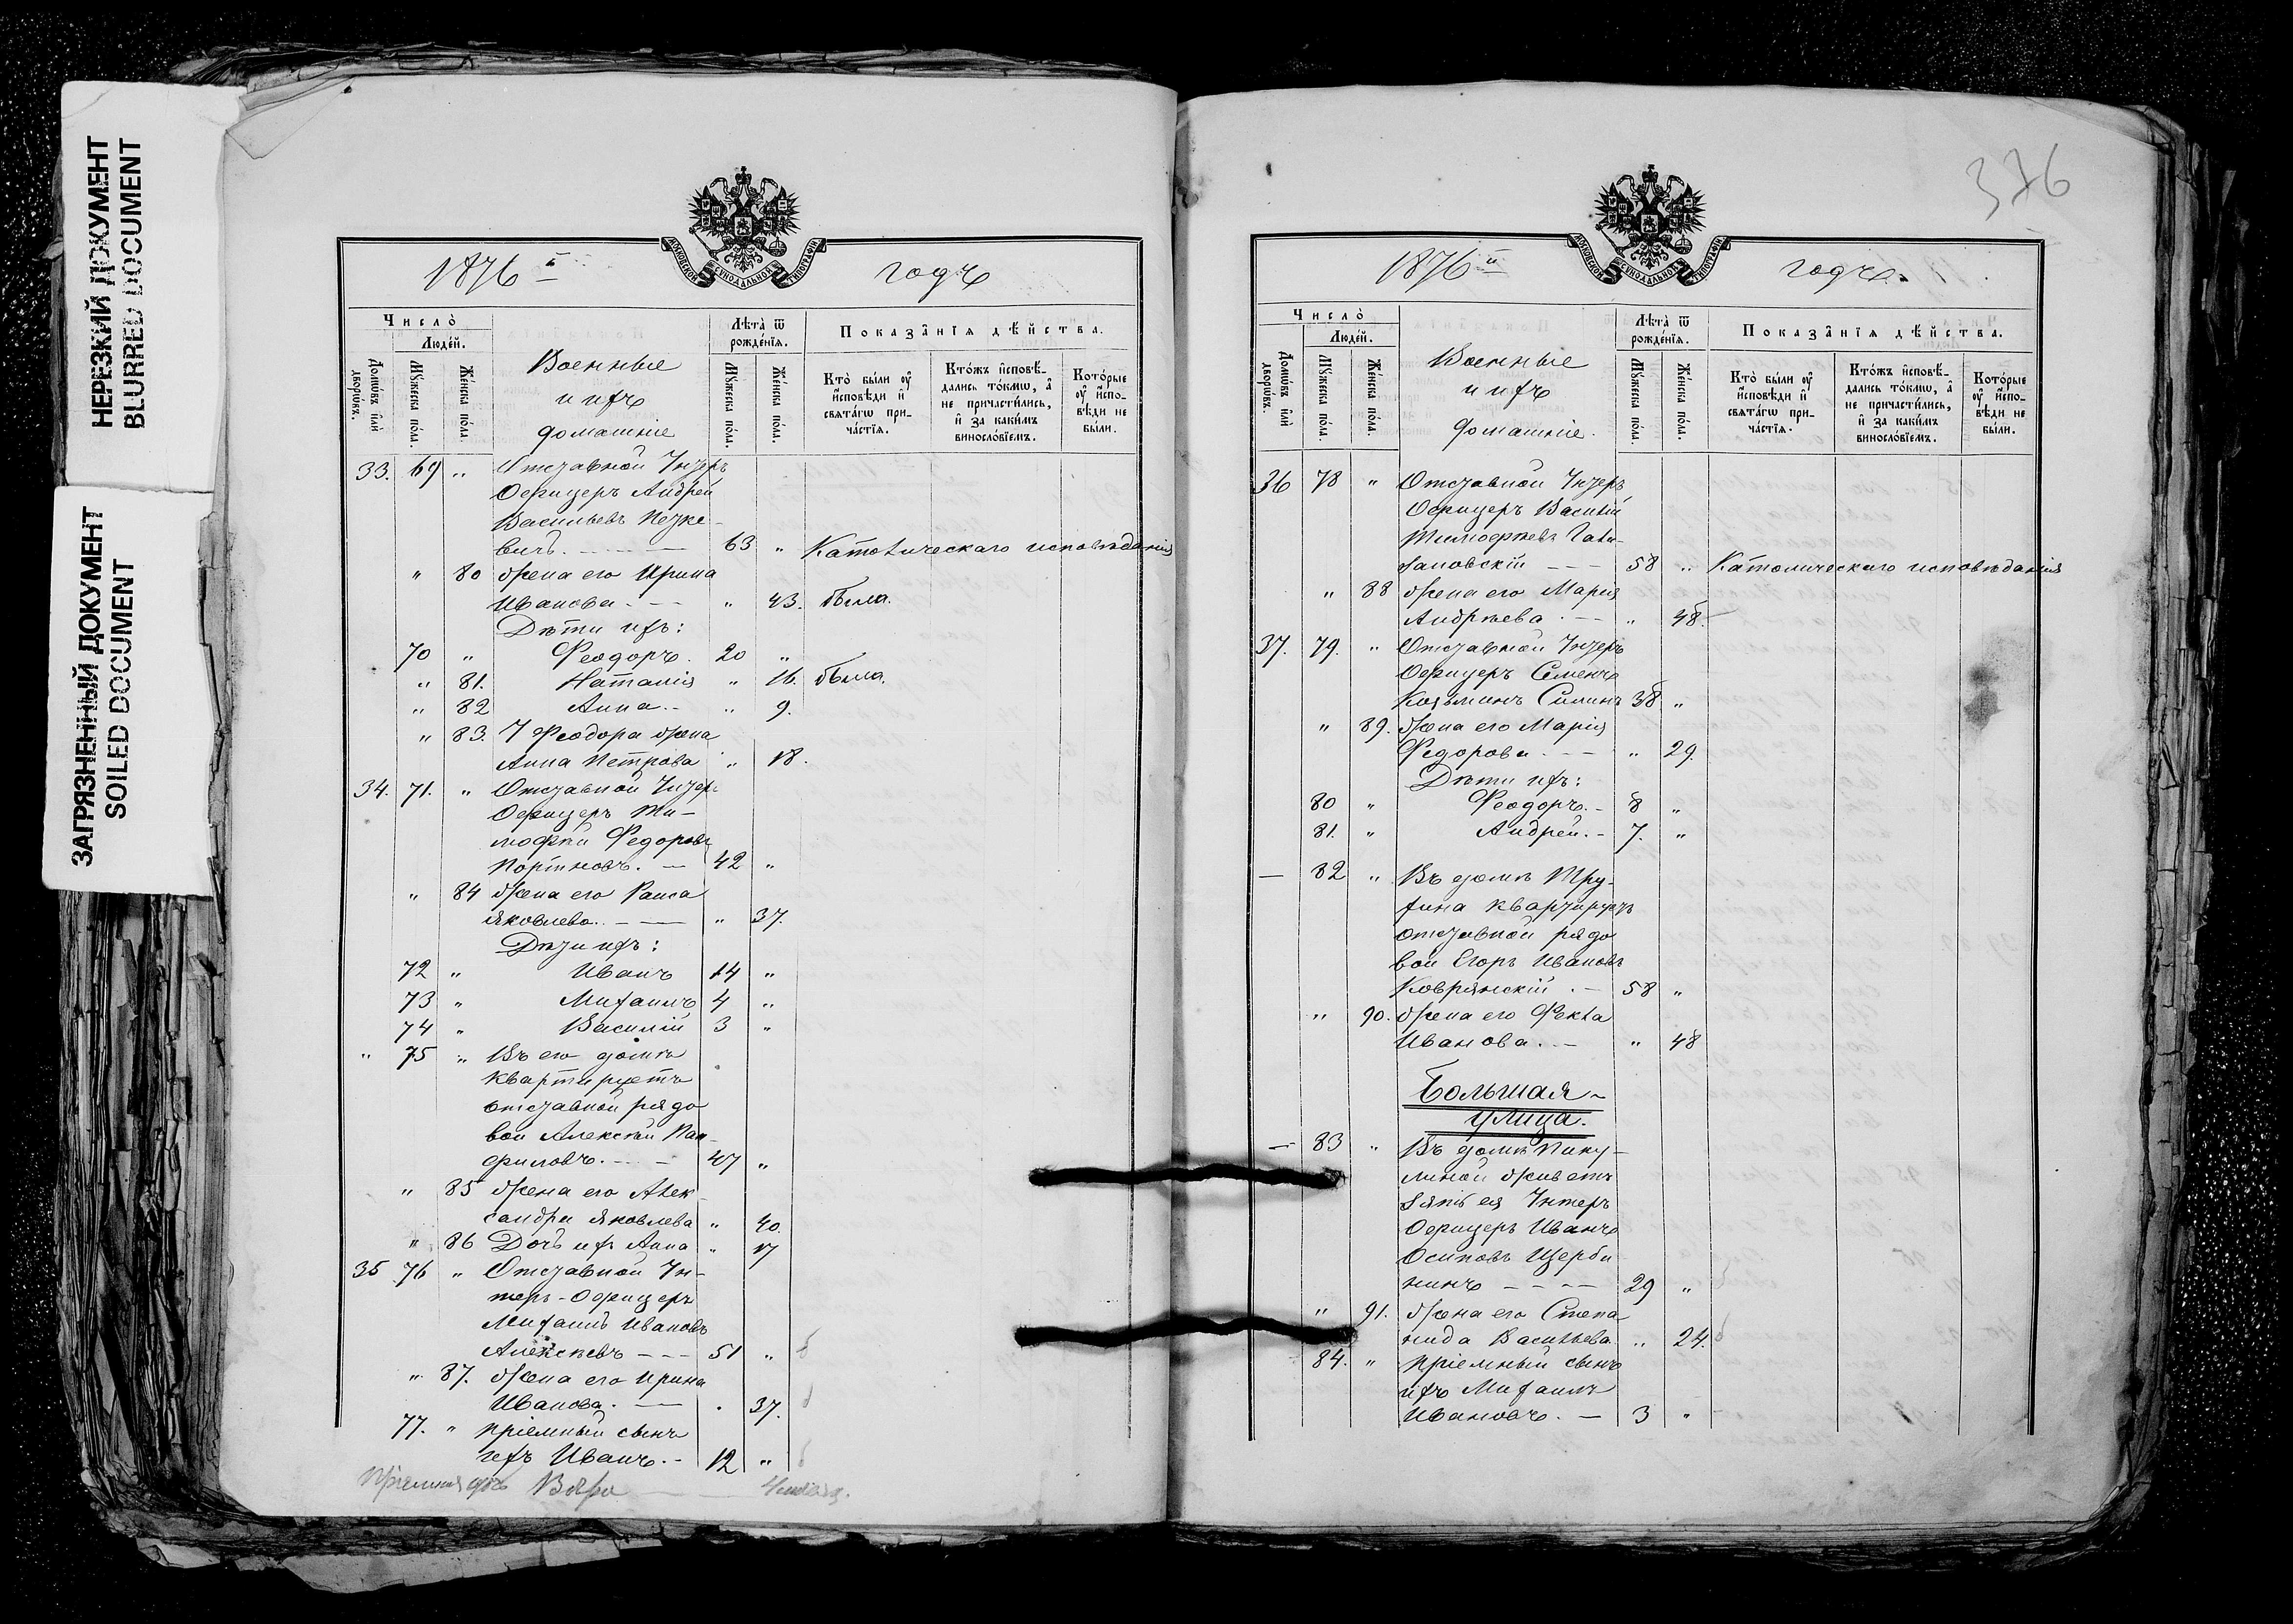 НЕРЕЗКИЙ ДОКУМЕНТ
BLURRED DOCUMENT
ЗАГРЯЗНЕННЫЙ ДОКУМЕНТ
SOILED DOCUMENT
МОСКОВСКОЙ СѴНОДАЛЬНОЙ ТИПОГРАФІИ
1876й годъ
Число̀
Люде́й.
Домѡ́въ и҆лѝ дворѡ́въ.
Мꙋ́жеска по́ла.
Же́нска по́ла.
Военные
и ихъ
домашніе
Лѣ́та ѿ рожде́нїѧ.
Мꙋ́жеска по́ла.
Же́нска по́ла.
Показа̑нїѧ дѣ́йства.
Кто̀ бы́ли ᲂу҆
и҆сповѣ́ди и҆
свѧта́гѡ при-
ча́стїѧ.
Кто́жъ и҆сповѣ́-
дались то́кмѡ, а҆
не причасти́лись,
и҆ за каки́мъ
винослові́емъ.
Кото́рые
ᲂу҆ и҆спо-
вѣ́ди не
бы́ли.
33. 69 „ Отставной Унтеръ
Офицеръ Андрей
Васильевъ Петке-
вичъ. — 63 „ Католическаго исповѣданія
„ 80 жена его Ирина
Иванова — „ 43. была.
Дѣти ихъ:
70 „ Феодоръ. 20 „
„ 81. Наталия „ 16. была.
„ 82 Анна. - „ 9.
„ 83. У Феодора жена
Анна Петрова „ 18.
34. 71. „ Отставной Унтеръ
Офицеръ Ти-
мофей Федоровъ
Портновъ. — 42 „
„ 84 жена его Раиса
Яковлева. — „ 37.
Дѣти ихъ:
72 „ Иванъ 14 „
73 „ Михаилъ 4 „
74 „ Василій 3 „
„ 75 „ Въ его домѣ
квартируетъ
отставной рядо
вой Алексѣй Пан-
филовъ. — 47 „
„ 85 жена его Алек-
сандра Яковлева „ 40.
„ 86 Дочь ихъ Анна „ 17
35 76 „ Отставной Ун-
теръ-Офицеръ
Михаилъ Ивановъ
Алексѣевъ — 51 „
„ 87. жена его Ирина
Иванова. — „ 37.
77. „ пріемный сынъ
ихъ Иванъ. - 12 „
Пріемная дочь Вѣра —
376
МОСКОВСКОЙ СѴНОДАЛЬНОЙ ТИПОГРАФІИ
1876й годъ.
Число̀
Люде́й.
Домѡ́въ и҆лѝ дворѡ́въ.
Мꙋ́жеска по́ла.
Же́нска по́ла.
Военные
и ихъ
домашніе.
Лѣ́та ѿ рожде́нїѧ.
Мꙋ́жеска по́ла.
Же́нска по́ла.
Показа̑нїѧ дѣ́йства.
Кто̀ бы́ли ᲂу҆
и҆сповѣ́ди и҆
свѧта́гѡ при-
ча́стїѧ.
Кто́жъ и҆сповѣ́-
дались то́кмѡ, а҆
не причасти́лись,
и҆ за каки́мъ
винослові́емъ.
Кото́рые
ᲂу҆ и҆спо-
вѣ́ди не
бы́ли.
36 78 „ Отставной Унтеръ
Офицеръ Василій
Тимофѣевъ
58 „ Католическаго исповѣданія
„ 88 жена его Марія
Андрѣева. — „ 48.
37. 79. „ Отставной Унтеръ
Офицеръ Семенъ
Козьминъ Силинъ 38 „
„ 89. жена его Марія
Федорова. — „ 29.
Дѣти ихъ:
80 „ Феодоръ. - 8 „
81. „ Андрей. - 7. „
— 82 „ Въ домѣ Тру-
хина квартируетъ
отставной рядо
вой Егоръ Ивановъ
Коврянскій. — 58 „
„ 90. жена его Фекла
Иванова. — „ 48
Большая
улица.
— 83 „ Въ домѣ Пику-
линой живетъ
зять ея Унтеръ
Офицеръ Иванъ
Осиповъ Щерби
нинъ — 29 „
„ 91. жена его Степа
нида Васильева. „ 24.
84. „ пріемный сынъ
ихъ Михаилъ
Ивановъ. — 3 „